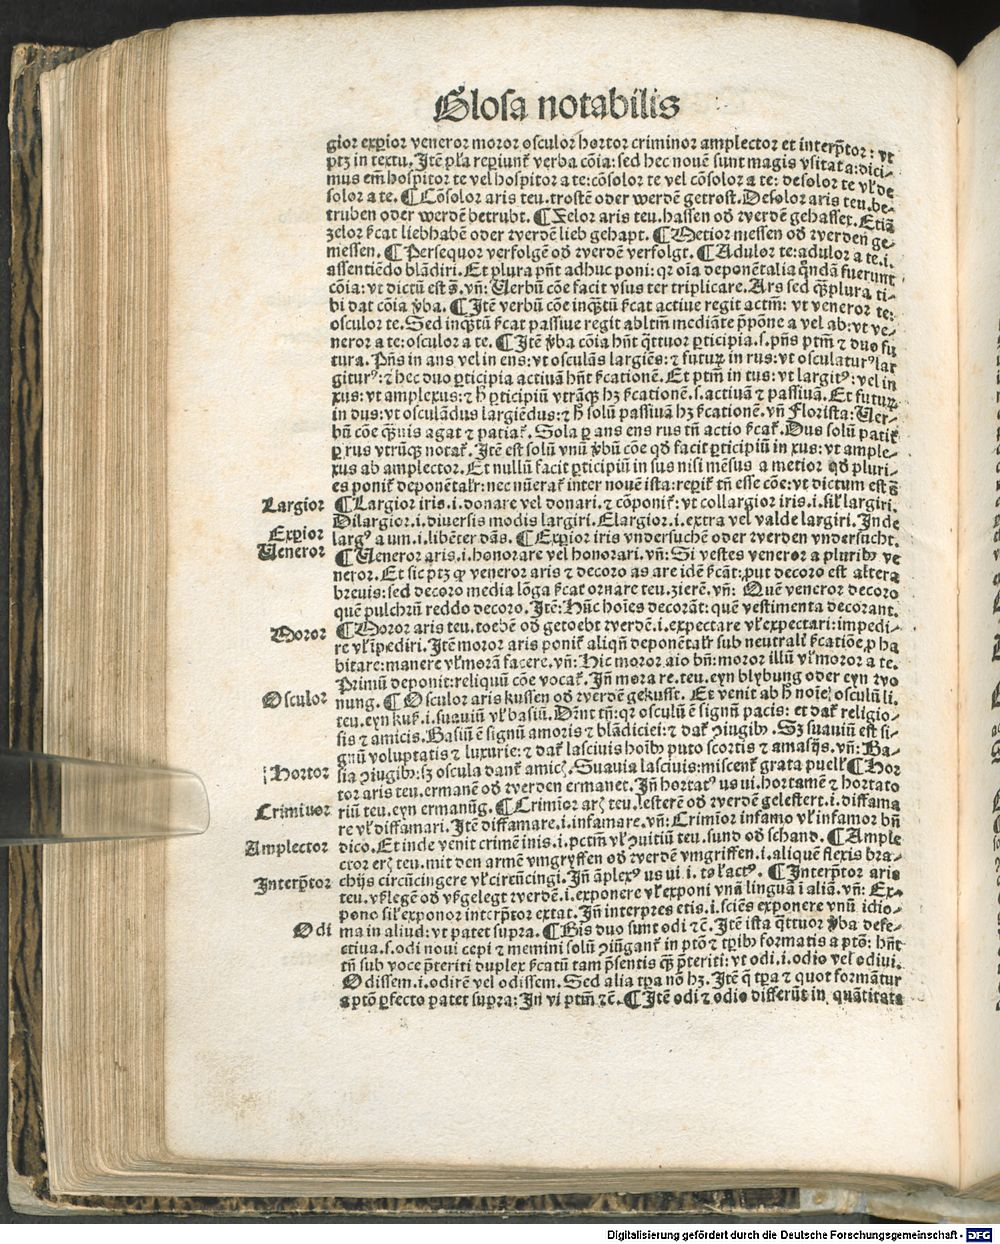 Glosa notabilis
gior exp̱ior veneror moror osculor hortor criminor amplector et interp̄tor: vt
ptꝫ in textu. Itē pl̓a rep̱iunt̉ verba cōia: sed hec nouē sunt magis vsitata: dici⸗
mus em̄ hospitor te vel hospitor a te: cōsolor te vel cōsolor a te: desolor te vl̓ de
solor a te. ¶ Cōsolor aris teu. trostē oder werdē getrost. Desolor aris teu. be⸗
truben oder werdē betrubt. ¶ Zelor aris teu. hassen od̓ werdē gehasset. Etiā
zelor s̓cat liebhabē oder werdē lieb gehapt. ¶ Metior messen od̓ werden ge⸗
messen. ¶ Persequor verfolgē od̓ werdē verfolgt. ¶ Adulor te: adulor a te. i.
assentiēdo blādiri. Et plura pn̄t adhuc poni: qꝛ oīa deponētalia q̄ndā fuerunt
cōia: vt dictū est s̄. vn̄: Uerbū cōe facit vsus ter triplicare. Ars sed qꝫplura ti⸗
bi dat cōia v̓ba. ¶ Itē verbū cōe inqꝫtū s̓cat actiue regit actm̄: vt veneror te:
osculor te. Sed inqꝫtū s̓cat passiue regit abltm̄ mediāte p̄pōne a vel ab: vt ve⸗
neror a te: osculor a te. ¶ Itē v̓ba cōia hn̄t q̄ttuor p̱ticipia. s. pn̄s ptm̄ ⁊ duo fu
tura. Pn̄s in ans vel in ens: vt osculās largiēs: ⁊ futuꝝ in rus: vt osculaturꝰ lar
giturꝰ: ⁊ hec duo p̱ticipia actiuā hn̄t s̓cationē. Et ptm̄ in tus: vt largitꝰ: vel in
xus: vt amplexus: ⁊ h̄ p̱ticipiū vtrāqꝫ hꝫ s̓cationē. s. actiuā ⁊ passiuā. Et futuꝝ
in dus: vt osculādus largiēdus: ⁊ h̄ solū passiuā hꝫ s̓cationē. vn̄ Florista: Uer⸗
bū cōe qꝫuis agat ⁊ patiat̉. Sola p̱ ans ens rus tn̄ actio s̓cat̉. Dus solū patit̉
p̱ rus vtrūqꝫ notat̉. Itē est solū vnū v̓bū cōe qd̓ facit p̱ticipiū in xus: vt ample⸗
xus ab amplector. Et nullū facit p̱ticipiū in sus nisi mēsus a metior qd̓ pluri⸗
es ponit̉ deponētalr̓: nec nūerat̉ inter nouē ista: rep̱it̉ tn̄ esse cōe: vt dictum est s̄
Largior ¶ Largior iris. i. donare vel donari. ⁊ cōponit̉: vt collargior iris. i. sil̓ largiri.
Dilargior. i. diuersis modis largiri. Elargior. i. extra vel valde largiri. Inde
Exp̱ior largꝰ a um. i. libēter dās. ¶ Exp̱ior iris vndersuchē oder werden vndersucht.
Ueneror ¶ Ueneror aris. i. honorare vel honorari. vn̄: Si vestes veneror a pluribꝫ ve
neror. Et sic ptꝫ ꝙ veneror aris ⁊ decoro as are idē s̓cāt: ꝓut decoro est altera
breuis: sed decoro media lōga s̓cat ornare teu. zierē. vn̄: Quē veneror decoro
quē pulchrū reddo decoro. Itē: Hūc hoīes decorāt: quē vestimenta decorant.
Moror ¶ Moror aris teu. toebē od̓ getoebt werdē. i. expectare vl̓ expectari: impedi⸗
re vl̓ īpediri. Itē moror aris ponit̉ aliqn̄ deponētalr̓ sub neutrali s̓catiōe, ꝓ ha
bitare: manere vl̓ morā facere. vn̄: Hic moror aio bn̄: moror illū vl̓ moror a te.
Primū deponit: reliquū cōe vocat̉. Jn̄ mora re. teu. eyn blybung oder eyn wo
Osculor nung. ¶ Osculor aris kussen od̓ werdē gekusst. Et venit ab h̄ noīe osculū li.
teu. eyn kuß. i. suauiū vl̓ basiū. Dr̄nt tn̄: qꝛ osculū ē signū pacis: et dat̉ religio⸗
sis ⁊ amicis. Basiū ē signū amoris ⁊ blādiciei: ⁊ dat̉ ꝯiugibꝫ. Sꝫ suauiū est si⸗
gnū voluptatis ⁊ luxurie: ⁊ dat̉ lasciuis hoībꝫ puto scortis ⁊ amasijs. vn̄: Ba⸗
Hortor sia ꝯiugibꝫ: sꝫ oscula dant̉ amicꝭ. Suauia lasciuis: miscent̉ grata puell̓ ¶ Hor
tor aris teu. ermanē od̓ werden ermanet. Jn̄ hortatꝰ us ui. hortamē ⁊ hortato
Criminor riū teu. eyn ermanūg. ¶ Crimior arꝭ teu. lesterē od̓ werdē gelestert. i. diffama
re vl̓ diffamari. Itē diffamare. i. infamare. vn̄: Crimior infamo vl̓ infamor bn̄
Amplector dico. Et inde venit crimē inis. i. pctm̄ vl̓ ꝯuitiū teu. sund od̓ schand. ¶ Ample
ctor erꝭ teu. mit den armē vmgryffen od̓ werdē vmgriffen. i. aliquē flexis bra⸗
Interp̄tor chijs circūcingere vl̓ circūcingi. Jn̄ āplexꝰ us ui. i. tal̓ actꝰ. ¶ Interp̄tor aris
teu. vßlegē od̓ vßgelegt werdē. i. exponere vl̓ exponi vnā linguā ī aliā. vn̄: Ex⸗
pono sil̓ exponor interp̄tor extat. Jn̄ interpres etis. i. sciēs exponere vnū idio⸗
Odi ma in aliud: vt patet supra. ¶ Bis duo sunt odi ⁊c̄. Itē ista q̄ttuor v̓ba defe⸗
ctiua. s. odi noui cepi ⁊ memini solū ꝯiugant̉ in ptō ⁊ tp̱ibꝫ formatis a ptō: hn̄t
tn̄ sub voce p̄teriti duplex s̓catū tam p̄sentis qꝫ p̄teriti: vt odi. i. odio vel odiui.
Odissem. i. odirē vel odissem. Sed alia tp̱a nō hꝫ. Itē q̄ tp̱a ⁊ quot formātur
a ptō p̱fecto patet supra: In vi ptm̄ ⁊c̄. ¶ Itē odi ⁊ odio differūt in quātitate
Digitalisierung gefördert durch die Deutsche Forschungsgemeinschaft - DFG